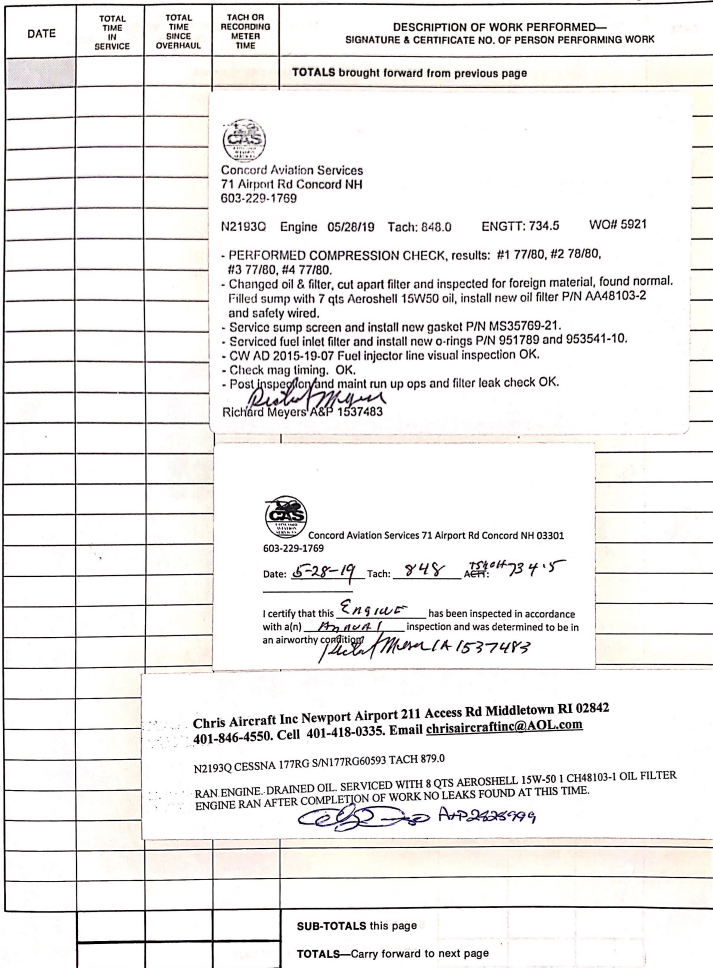 DATE
TOTAL TIME IN SERVICE
TOTAL TIME SINCE OVERHAUL
TACH OR RECORDING METER TIME
DESCRIPTION OF WORK PERFORMED—
SIGNATURE & CERTIFICATE NO. OF PERSON PERFORMING WORK
TOTALS brought forward from previous page
CAS
Concord Aviation Services
71 Airport Rd Concord NH
603-229-1769
N2193Q Engine 05/28/19 Tach: 848.0 ENGTT: 734.5 WO# 5921
- PERFORMED COMPRESSION CHECK, results: #1 77/80, #2 78/80,
#3 77/80, #4 77/80.
- Changed oil & filter, cut apart filter and inspected for foreign material, found normal.
Filled sump with 7 qts Aeroshell 15W50 oil, install new oil filter P/N AA48103-2
and safety wired.
- Service sump screen and install new gasket P/N MS35769-21.
- Serviced fuel inlet filter and install new o-rings P/N 951789 and 953541-10.
- CW AD 2015-19-07 Fuel injector line visual inspection OK.
- Check mag timing. OK.
- Post inspection and maint run up ops and filter leak check OK.
Richard Meyers A&P 1537483
CAS
CONCORD AVIATION SERVICES
Concord Aviation Services 71 Airport Rd Concord NH 03301
603-229-1769
Date: 5-28-19 Tach: 848 ACTT: TSMOH 734.5
I certify that this Engine has been inspected in accordance
with a(n) Annual inspection and was determined to be in
an airworthy condition
IA 1537483
Chris Aircraft Inc Newport Airport 211 Access Rd Middletown RI 02842
401-846-4550. Cell 401-418-0335. Email chrisaircraftinc@AOL.com
N2193Q CESSNA 177RG S/N177RG60593 TACH 879.0
RAN ENGINE. DRAINED OIL. SERVICED WITH 8 QTS AEROSHELL 15W-50 1 CH48103-1 OIL FILTER
ENGINE RAN AFTER COMPLETION OF WORK NO LEAKS FOUND AT THIS TIME.
SUB-TOTALS this page
TOTALS—Carry forward to next page